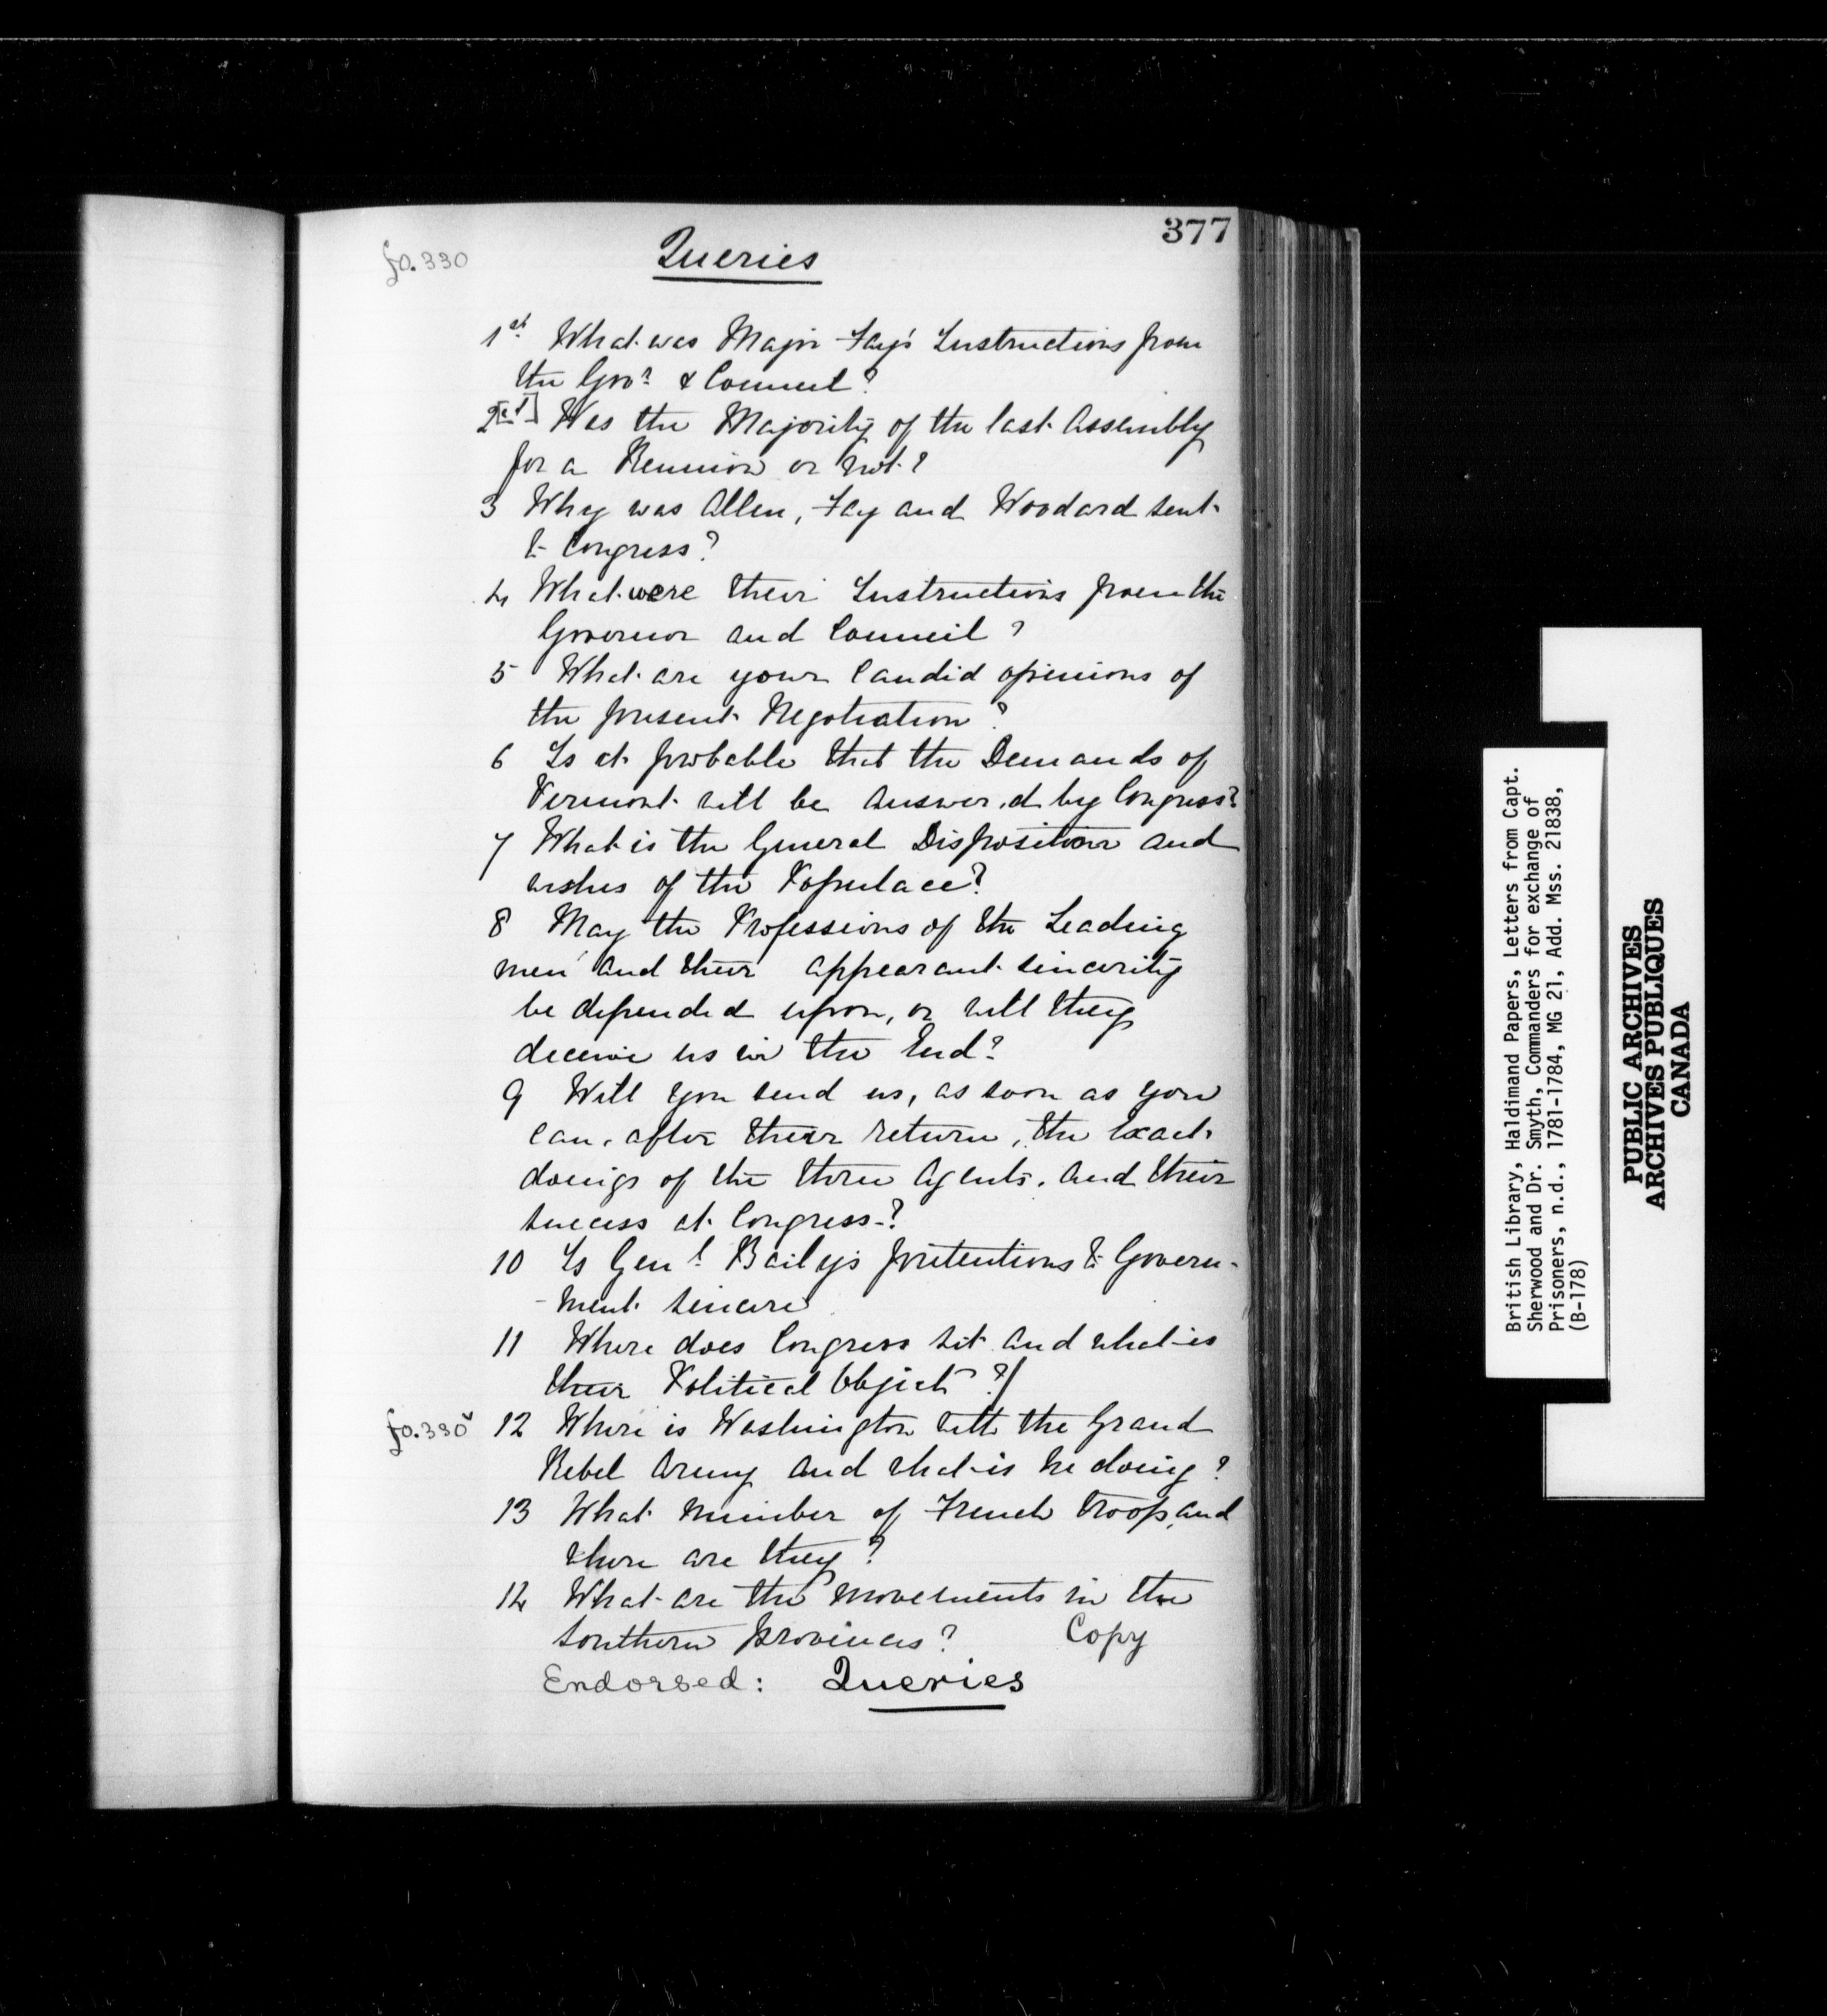 377
fo. 330
Queries
1st. What was Major Fay's Instructions from
the Govr. & Council?
2[nd] Was the Majority of the last Assembly
for a Reunion or not?
3 Why was Allen, Fay and Woodard sent
to Congress?
4 What were their Instructions from the
Governor and Council?
5 What are your Candid opinions of
the present Negotiation?
6 Is it probable that the Demands of
Vermont will be Answer,d by Congress?
7 What is the General Disposition and
wishes of the Populace?
8 May the Professions of the Leading
men and their appearant sincerity
be depended upon, or will they
deceive us in the End?
9 Will you send us, as soon as you
can, after their return, the Exact
doings of the three Agents, and their
success at Congress-?
10 Is Genl. Baily's pretentions to Govern-
-ment sincere
11 Where does Congress sit and what is
their Political Object?/
fo. 330v
12 Where is Washington with the Grand
Rebel Army and what is he doing?
13 What Number of French Troops, and
where are they?
14 What are the movements in the
Southern provinces? Copy
Endorsed: Queries
British Library, Haldimand Papers, Letters from Capt.
Sherwood and Dr. Smyth, Commanders for exchange of
Prisoners, n.d., 1781-1784, MG 21, Add. Mss. 21838,
(B-178)
PUBLIC ARCHIVES
ARCHIVES PUBLIQUES
CANADA